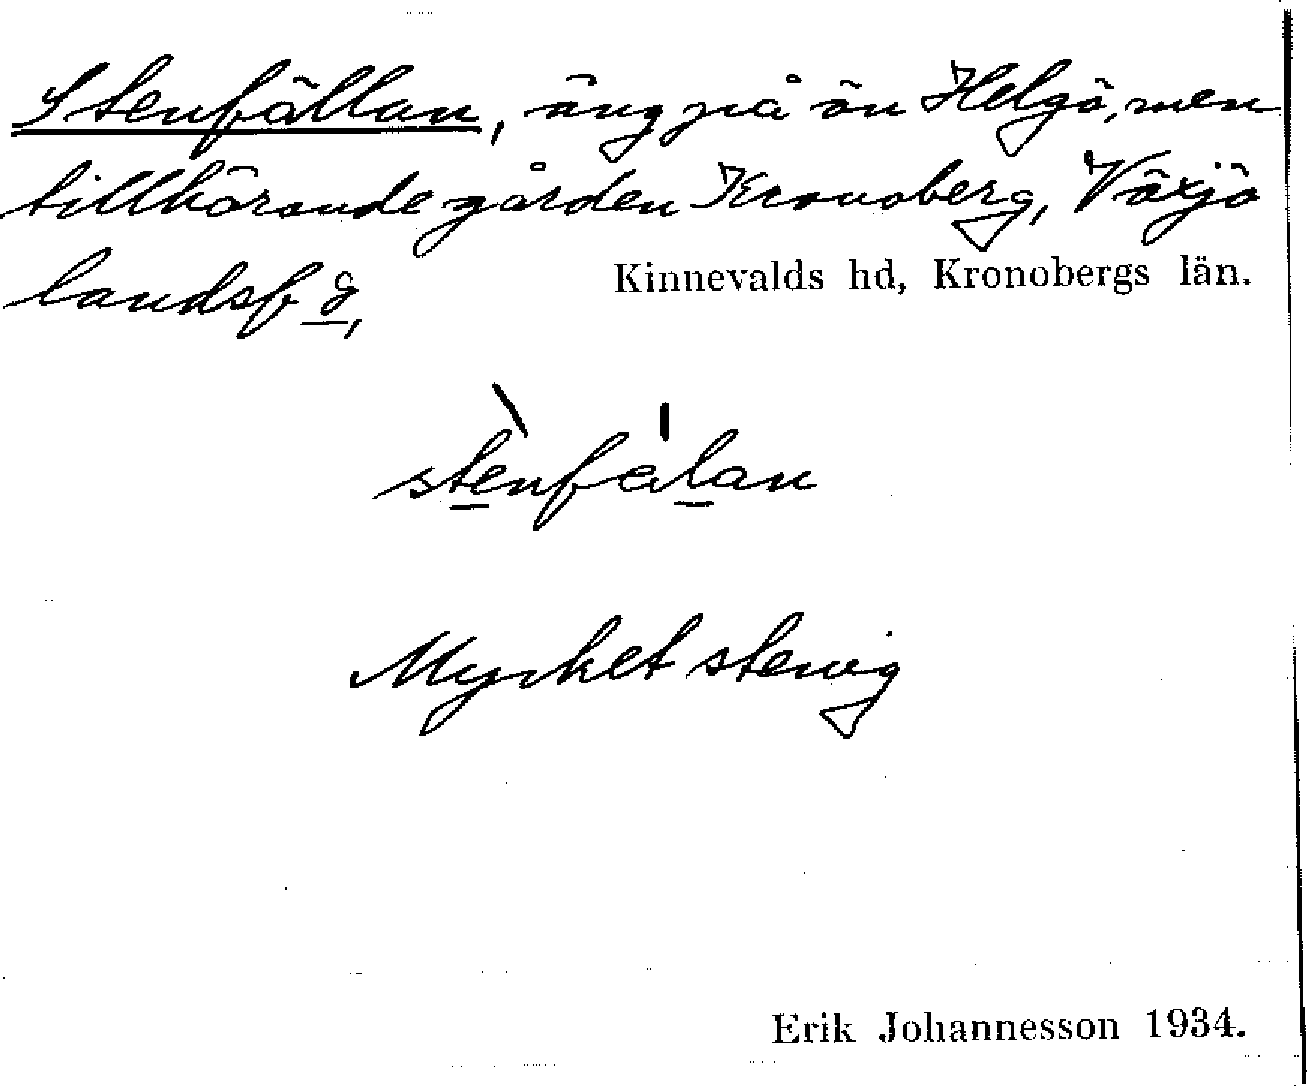 Stenfällan, äng på ön Helgö, men
tillhörande gården Kronoberg, Växjö
landsf g,
Kinnevalds hd, Kronobergs län.
stenfälan
Mycket stenig
Erik Johannesson 1934.